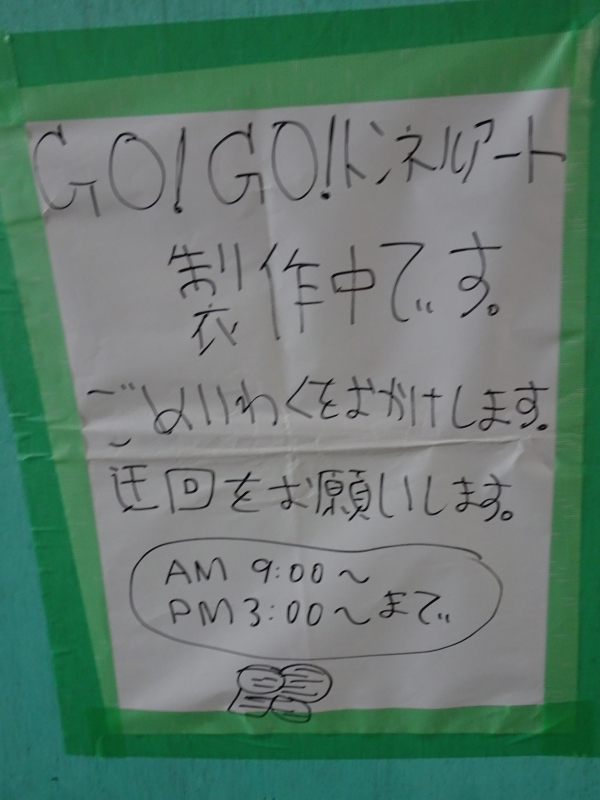 GO! GO!トンネルアート
製作中です。
ごめいわくをおかけします。
迂回をお願いします。
AM 9:00〜
PM 3:00〜まで